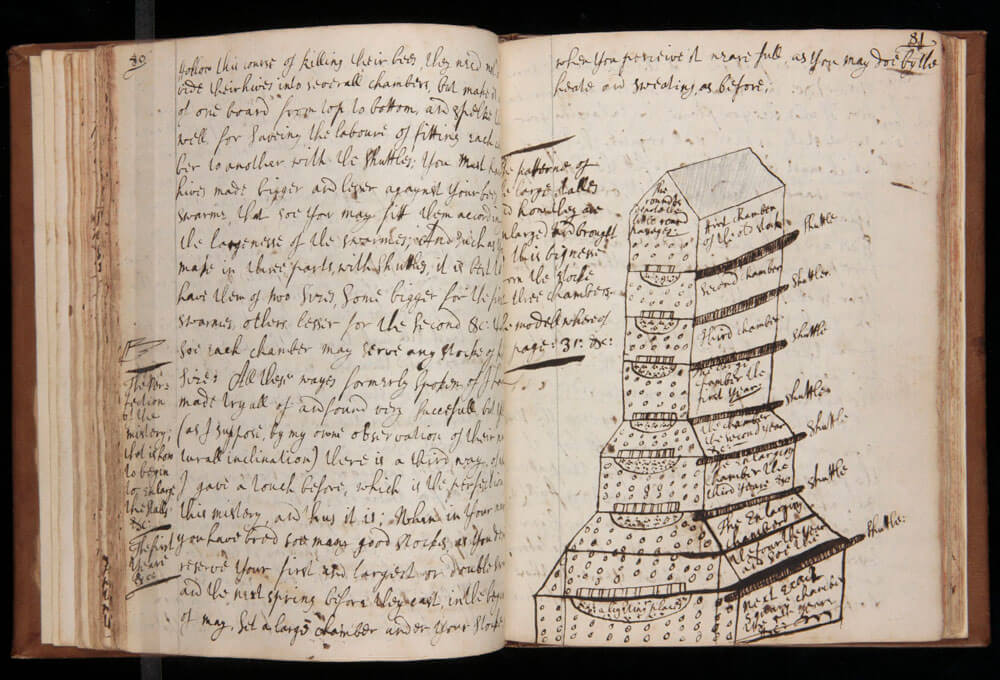 80
follow this course of killing their bees, they need not
vide their hives into severall chambers, but make
of one board from top to bottom, and
well, for saveing the labour of fitting each
ber to another with the shuttles: You must
hives made bigger and lesser against your bees
swarme that soe you may fitt them accord
the largenesse of the swarmes: And such as
make in three parts, with shuttles, it is best
have them of two sizes, some bigger for the fi
swarmes, others lesser for the second &c:
soe each chamber may serve any stocke of
sizes All these wayes formerly spoken of I
made tryall of and found very succesfull but
(as I suppose, by my owne observation of their
turall inclination) there is a third way, of
I gave a touch before, which is the perfection
this mistery, and thus it is: When in your
you have bred soe many good stockes, as you
reserve your first and largest or double
and the next spring before they cast, in the beg
of may, set a large chamber under your stocke
The per-
fection
of the
mistery;
that is how
to begin
to enlarge
the stalls
&c:
The first
yeare
&c:
81
when you perceive it neare full, as you may doe by the
heate and sweating, as before,
he patterne of
large stalles
d how they are
nlarged and brought
this bignesse
om the stocke
three chambers
he modell whereof
page: 31: &c:
The
rounds
little
passages:
first chamber
of the old stocke
shuttle
second chamber
shuttle
Third chamber
shuttle
chamber the
first yeare
shuttle
the chamber
the second yeare
&c
shuttle
The enlarging
chamber the
third yeare &c
shuttle
The Enlarging
chamber
the fourth yeare
and soe the
shuttle:
next great
square chamber
the 5th yeare
a lighting place